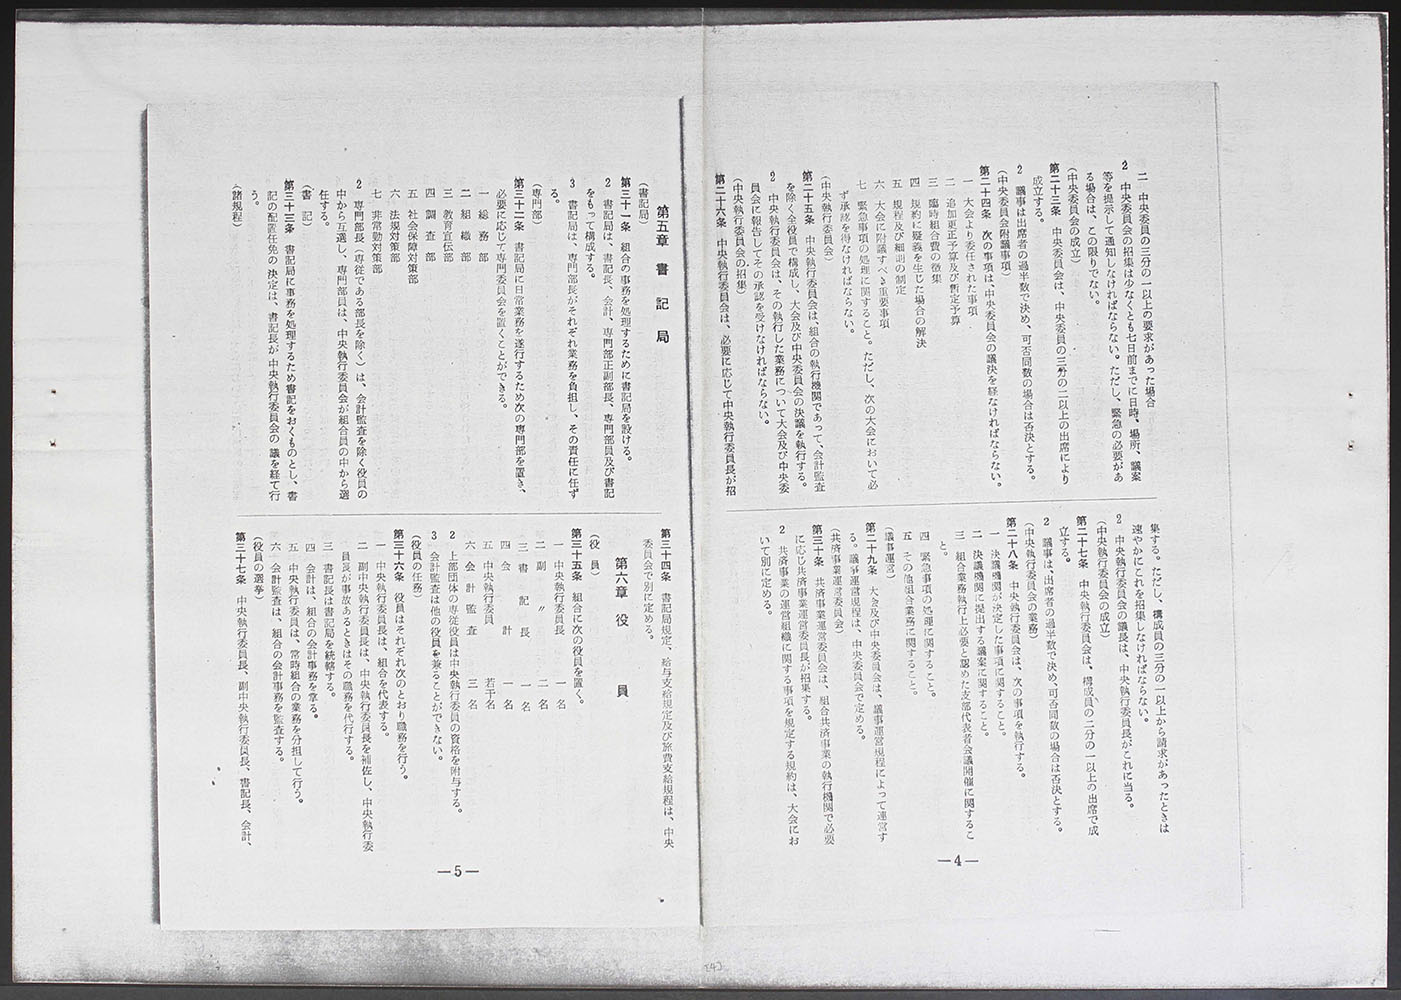 二　中央委員の三分の一以上の要求があった場合
2　中央委員会の招集は少なくとも七日前までに日時、場所、議案
等を提示して通知しなければならない。ただし、緊急の必要があ
る場合は、この限りでない。
（中央委員会の成立）
第二十三条　中央委員会は、中央委員の三分の二以上の出席により
成立する。
2　議事は出席者の過半数で決め、可否同数の場合は否決とする。
（中央委員会附議事項）
第二十四条　次の事項は、中央委員会の議決を経なければならない。
一　大会より委任された事項
二　追加更正予算及び暫定予算
三　臨時組合費の徴集
四　規約に疑義を生じた場合の解決
五　規程及び細則の制定
六　大会に附議すべき重要事項
七　緊急事項の処理に関すること。ただし、次の大会において必
ず承認を得なければならない。
（中央執行委員会）
第二十五条　中央執行委員会は、組合の執行機関であって、会計監査
を除く全役員で構成し、大会及び中央委員会の決議を執行する。
2　中央執行委員会は、その執行した業務について大会及び中央委
員会に報告してその承認を受けなければならない。
（中央執行委員会の招集）
第二十六条　中央執行委員会は、必要に応じて中央執行委員長が招
集する。ただし、構成員の三分の一以上から請求があったときは
速やかにこれを招集しなければならない。
2　中央執行委員会の議長は、中央執行委員長がこれに当る。
（中央執行委員会の成立）
第二十七条　中央執行委員会は、構成員の二分の一以上の出席で成
立する。
2　議事は、出席者の過半数で決め、可否同数の場合は否決とする。
（中央執行委員会の業務）
第二十八条　中央執行委員会は、次の事項を執行する。
一　決議機関が決定した事項に関すること。
二　決議機関に提出する議案に関すること。
三　組合業務執行上必要と認めた支部代表者会議開催に関するこ
と。
四　緊急事項の処理に関すること。
五　その他組合業務に関すること。
（議事運営）
第二十九条　大会及び中央委員会は、議事運営規程によって運営す
る。議事運営規程は、中央委員会で定める。
（共済事業運営委員会）
第三十条　共済事業運営委員会は、組合共済事業の執行機関で必要
に応じ共済事業運営委員長が招集する。
2　共済事業の運営組織に関する事項を規定する規約は、大会にお
いて別に定める。
—4—
第五章　書記局
（書記局）
第三十一条　組合の事務を処理するために書記局を設ける。
2　書記局は、書記長、会計、専門部正副部長、専門部員及び書記
をもって構成する。
3　書記局は、専門部長がそれぞれ業務を負担し、その責任に任ず
る。
（専門部）
第三十二条　書記局に日常業務を遂行するため次の専門部を置き、
必要に応じて専門委員会を置くことができる。
一　総務部
二　組織部
三　教育宣伝部
四　調査部
五　社会保障対策部
六　法規対策部
七　非常勤対策部
2　専門部長（専従である部長を除く）は、会計監査を除く役員の
中から互選し、専門部員は、中央執行委員会が組合員の中から選
任する。
（書記）
第三十三条　書記局に事務を処理するため書記をおくものとし、書
記の配置任免の決定は、書記長が中央執行委員会の議を経て行
う。
（諸規程）
第三十四条　書記局規定、給与支給規定及び旅費支給規程は、中央
委員会で別に定める。
第六章　役員
（役員）
第三十五条　組合に次の役員を置く。
一　中央執行委員長　一名
二　副　〃　二名
三　書記長　一名
四　会計　一名
五　中央執行委員　若干名
六　会計監査　三名
2　上部団体の専従役員は中央執行委員の資格を附与する。
3　会計監査は他の役員を兼ることができない。
（役員の任務）
第三十六条　役員はそれぞれ次のとおり職務を行う。
一　中央執行委員長は、組合を代表する。
二　副中央執行委員長は、中央執行委員長を補佐し、中央執行委
員長が事故あるときはその職務を代行する。
三　書記長は書記局を統轄する。
四　会計は、組合の会計事務を掌る。
五　中央執行委員は、常時組合の業務を分担して行う。
六　会計監査は、組合の会計事務を監査する。
（役員の選挙）
第三十七条　中央執行委員長、副中央執行委員長、書記長、会計、
—5—
(4)